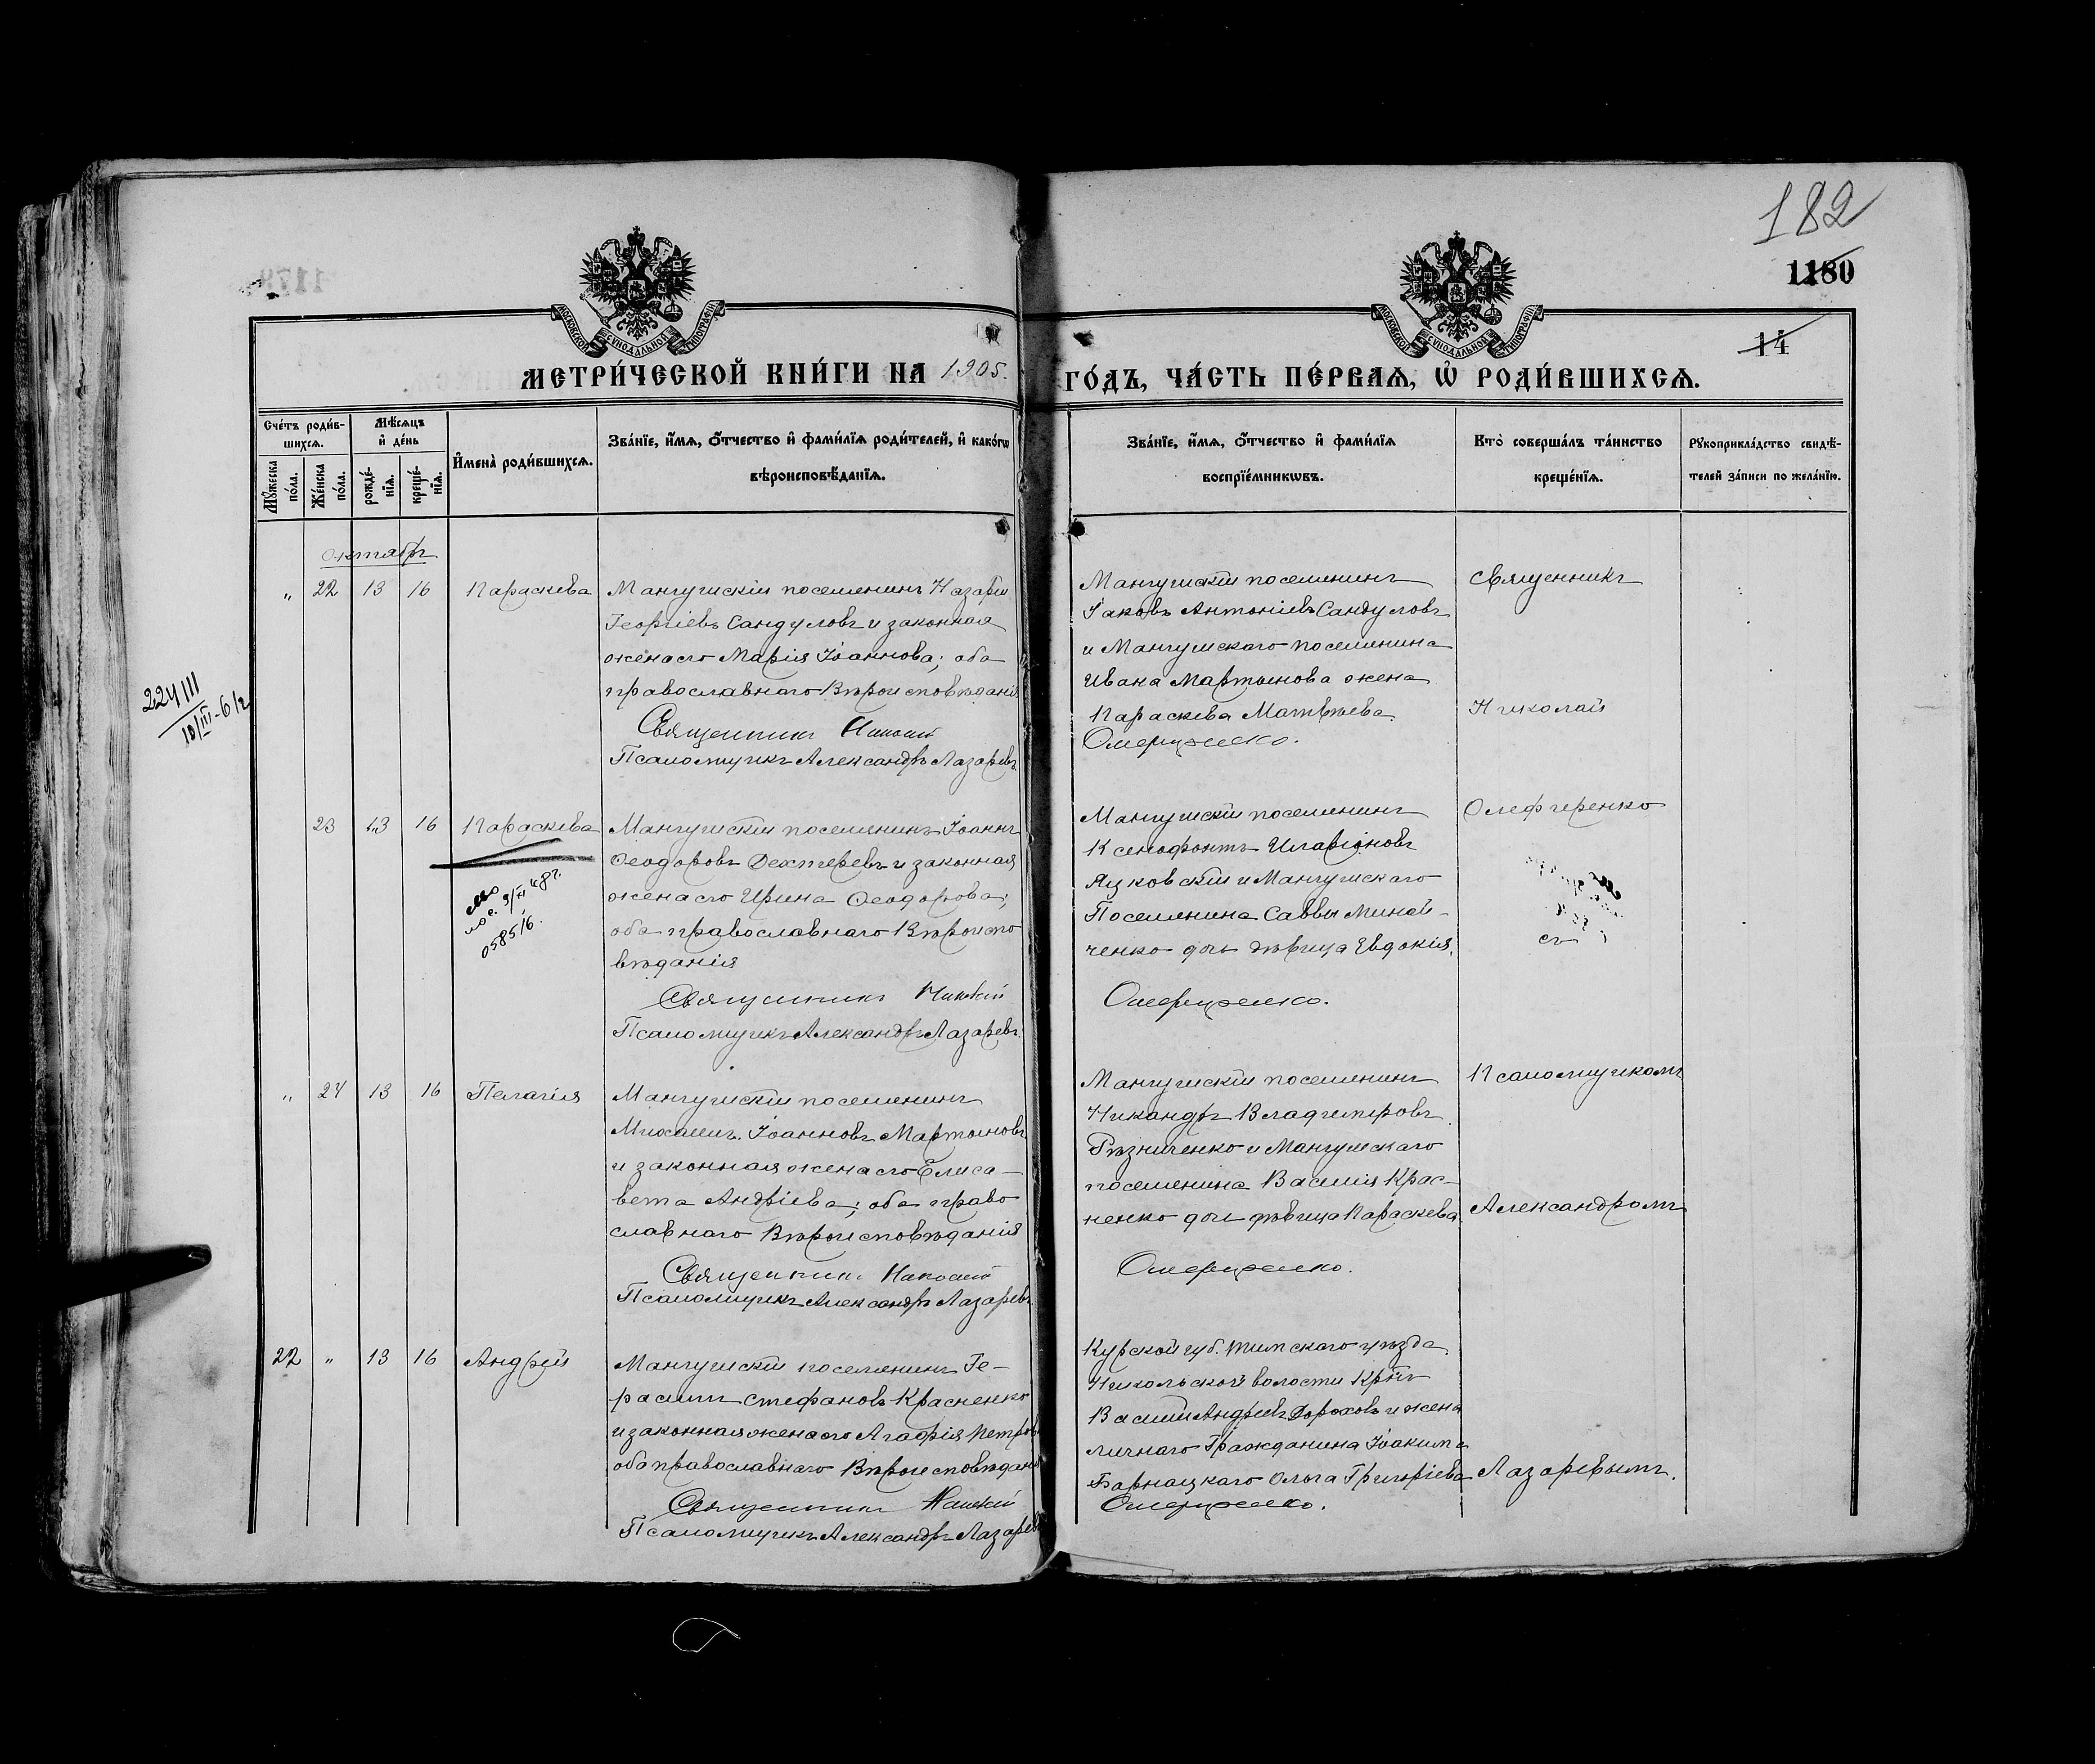 182
1180
14
МОСКОВСКОЙ СѴНОДАЛЬНОЙ ТИПОГРАФІИ
МОСКОВСКОЙ СѴНОДАЛЬНОЙ ТИПОГРАФІИ
МЕТРИ́ЧЕСКОЙ КНИ́ГИ НА 1905. ГО́ДЪ, ЧА́СТЬ ПЕ́РВАѦ, Ѡ҆ РОДИ́ВШИХСѦ.
Сче́тъ роди́в-
шихсѧ.
Мꙋ́жеска по́ла.
Же́нска по́ла.
Мѣ́сѧцъ
и҆ де́нь
рожде́-
нїѧ.
креще́-
нїѧ.
И҆мена̀ роди́вшихсѧ.
Зва́нїе, и҆́мѧ, ѻ҆́тчество и҆ фами́лїѧ роди́телей, и҆ како́гѡ
вѣроисповѣ́данїѧ.
Зва́нїе, и҆́мѧ, ѻ҆́тчество и҆ фами́лїѧ
воспрїе́мникѡвъ.
Кто̀ соверша́лъ та́инство
креще́нїѧ.
Рꙋкоприкла́дство свидѣ́-
телей за́писи по жела́нїю.
Октябрь
„ 22 13 16 Параскева
Мангушскій поселянинъ Назарій
Георгіевъ Сандуловъ и законная
жена его Марія Іоаннова; оба
православнаго Вѣроисповѣданія
Священникъ Николай
Псаломщикъ Александръ Лазаревъ
Мангушскій поселянинъ
Іаковъ Антоніевъ Сандуловъ
и Мангушскаго поселянина
Ивана Мартынова жена
Параскева Матвѣева.
Олефиренко.
Священникъ
Николай
Олефиренко
съ
Псаломщикомъ
Александромъ
Лазаревымъ.
23 13 16 Параскева
Мангушскій поселянинъ Іоаннъ
Ѳеодоровъ Дехтеревъ и законная
жена его Ирина Ѳеодорова;
оба православнаго Вѣроиспо
вѣданія
Священникъ Николай
Псаломщикъ Александръ Лазаревъ
0585/6.
Мангушскій поселянинъ
Ксенофонтъ Иларіоновъ
Яцковскій и Мангушскаго
Поселянина Саввы Минай-
ченко дочь дѣвица Евдокія.
Олефиренко.
„ 24 13 16 Пелагія
Мангушскій поселянинъ
Михаилъ Іоанновъ Мартыновъ
и законная жена его Елиса-
вета Андріева; оба право
славнаго Вѣроисповѣданія
Священникъ Николай
Псаломщикъ Александръ Лазаревъ
Мангушскій поселянинъ
Никандръ Владиміровъ
Рѣзниченко и Мангушскаго
поселянина Василія Крас-
ненко дочь дѣвица Параскева.
Олефиренко.
22 „ 13 16 Андрей
Мангушскій поселянинъ Ге-
расимъ Стефановъ Красненко
и законная жена его Агафія Петрова
оба православнаго Вѣроисповѣданія
Священникъ Николай
Псаломщикъ Александръ Лазаревъ
Курской губ. Тимскаго уѣзда
Никольской волости Крѣнъ
Василій Андреевъ Дороховъ и жена
личнаго Гражданина Іоакима
Барнацкаго Ольга Григоріева
Олефиренко.